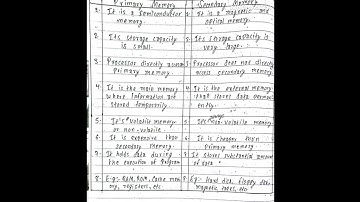 Primary Memory Secondary Memory
1. It is a Semiconductor memory. 1. It is a magnetic and optical memory.
2. Its storage capacity is small. 2. Its storage capacity is very large.
3. Processor directly access Primary memory. 3. Processor does not directly access secondary memory.
4. It is the main memory where information are stored temporarily. 4. It is the external memory that stored data permanently.
5. It's volatile memory or non-volatile. 5. It's non-volatile memory.
6. It is expensive than secondary memory. 6. It is cheaper than primary memory.
7. It holds data during the execution of Program. 8. It stores substantial amount of data.
8. E.g:- RAM, ROM, cache memory, registers, etc 8. Eg:- Hard disk, floppy disk, magnetic tapes, etc